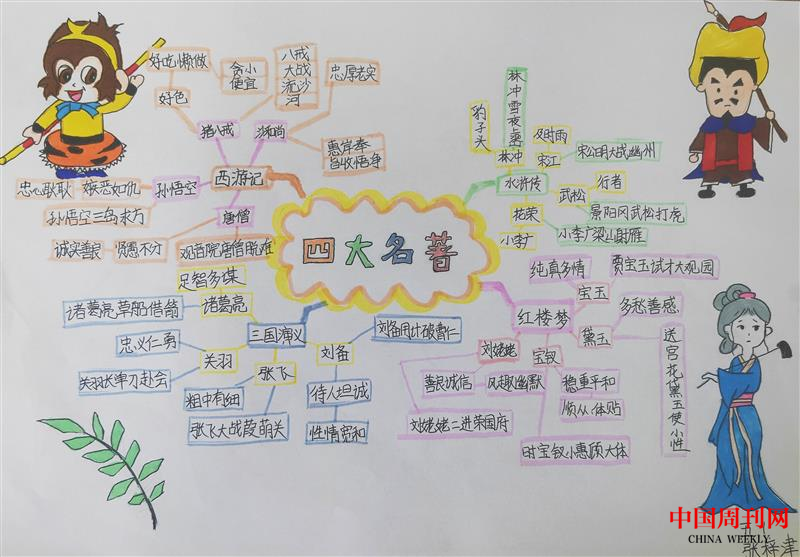 四大名著
西游记
猪八戒
好吃懒做
好色
贪小
便宜
沙和尚
八戒
大战
流沙
河
忠厚老实
惠岸奉
旨收悟净
孙悟空
忠心耿耿
嫉恶如仇
孙悟空三岛求方
唐僧
诚实善良
贤愚不分
观音院唐僧脱难
水浒传
林冲
豹子头
林冲雪夜
宋江
及时雨
宋公明大战幽州
武松
行者
景阳冈武松打虎
花荣
小李广
小李广梁山射雁
三国演义
诸葛亮
足智多谋
诸葛亮草船借箭
关羽
忠义仁勇
关羽长单刀赴会
张飞
粗中有细
张飞大战葭萌关
刘备
刘备用计破曹仁
待人坦诚
性情宽和
红楼梦
宝玉
纯真多情
贾宝玉试才大观园
黛玉
多愁善感
送宫花黛玉使小性
宝钗
稳重平和
顺从体贴
时宝钗小惠顾大体
刘姥姥
善良诚信
风趣幽默
刘姥姥二进荣国府
中国周刊网
CHINA WEEKLY